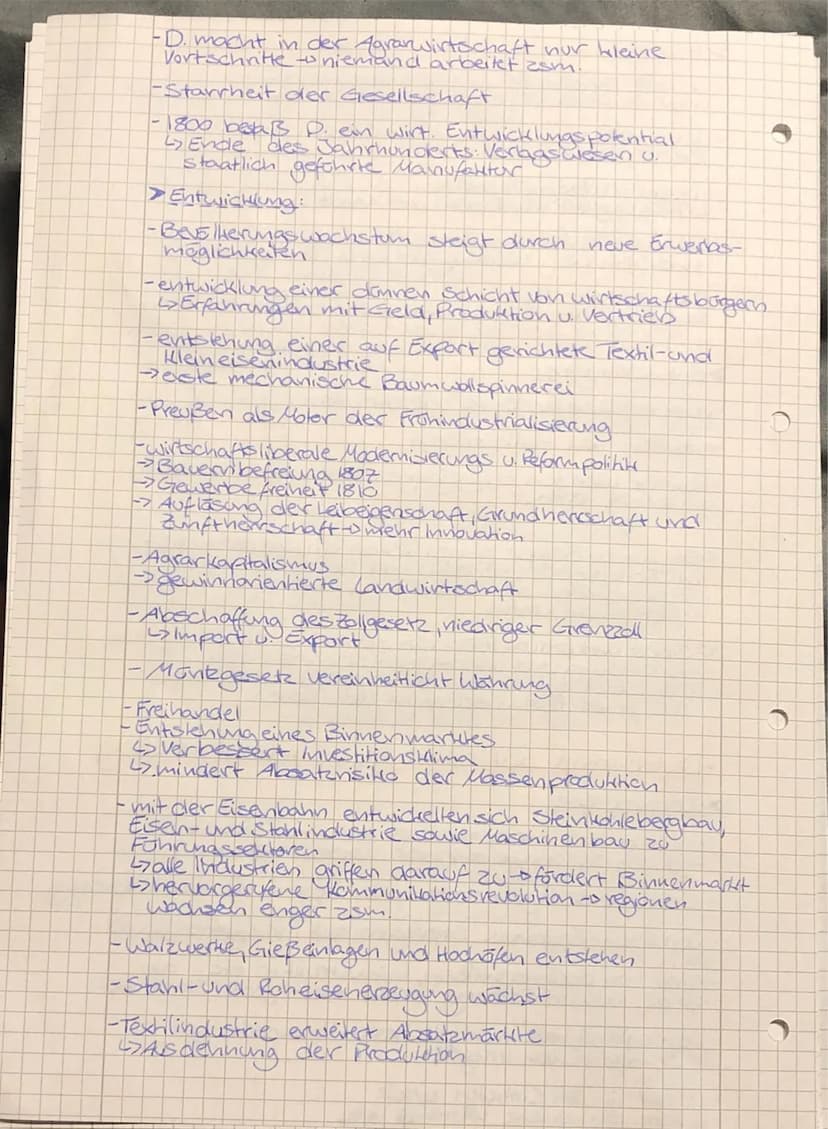 - D. macht in der Agrarwirtschaft nur kleine
Vortschritte → niemand arbeitet zsm.
- Starrheit der Gesellschaft
- 1800 besaß D. ein wirt. Entwicklungspotential
↳ Ende des Jahrhunderts: Verlagswesen u.
staatlich geführte Manufaktur
➤ Entwicklung:
- Bevölkerungswachstum steigt durch neue Erwerbs-
möglichkeiten
- entwicklung einer dünnen Schicht von wirtschaftsbürgern
↳ Erfahrungen mit Geld, Produktion u. Vertrieb
- entstehung einer auf Export gerichtete Textil- und
Kleineisenindustrie
→ erste mechanische Baumwollspinnerei
- Preußen als Motor der Frühindustrialisierung
- wirtschaftsliberale Modernisierungs u. Reformpolitik
→ Bauernbefreiung 1807
→ Gewerbefreiheit 1810
→ Auflösung der Leibeigenschaft, Grundherrschaft und
Zunftherrschaft → mehr Innovation
- Agrarkapitalismus
→ gewinnorientierte Landwirtschaft
- Abschaffung des Zollgesetz, niedriger Grenzzoll
↳ Import u. Export
- Münzgesetz vereinheitlicht Währung
- Freihandel
- Entstehung eines Binnenmarktes
↳ verbessert Investitionsklima
↳ mindert Absatzrisiko der Massenproduktion
- mit der Eisenbahn entwickelten sich Steinkohlebergbau,
Eisen- und Stahlindustrie sowie Maschinenbau zu
Führungssektoren
↳ alle Industrien griffen darauf zu → fördert Binnenmarkt
↳ hervorgerufene Kommunikationsrevolution → regionen
wachsen enger zsm.
- Walzwerke, Gießeinlagen und Hochöfen entstehen
- Stahl- und Roheisenerzeugung wächst
- Textilindustrie erweitert Absatzmärkte
↳ Ausdehnung der Produktion